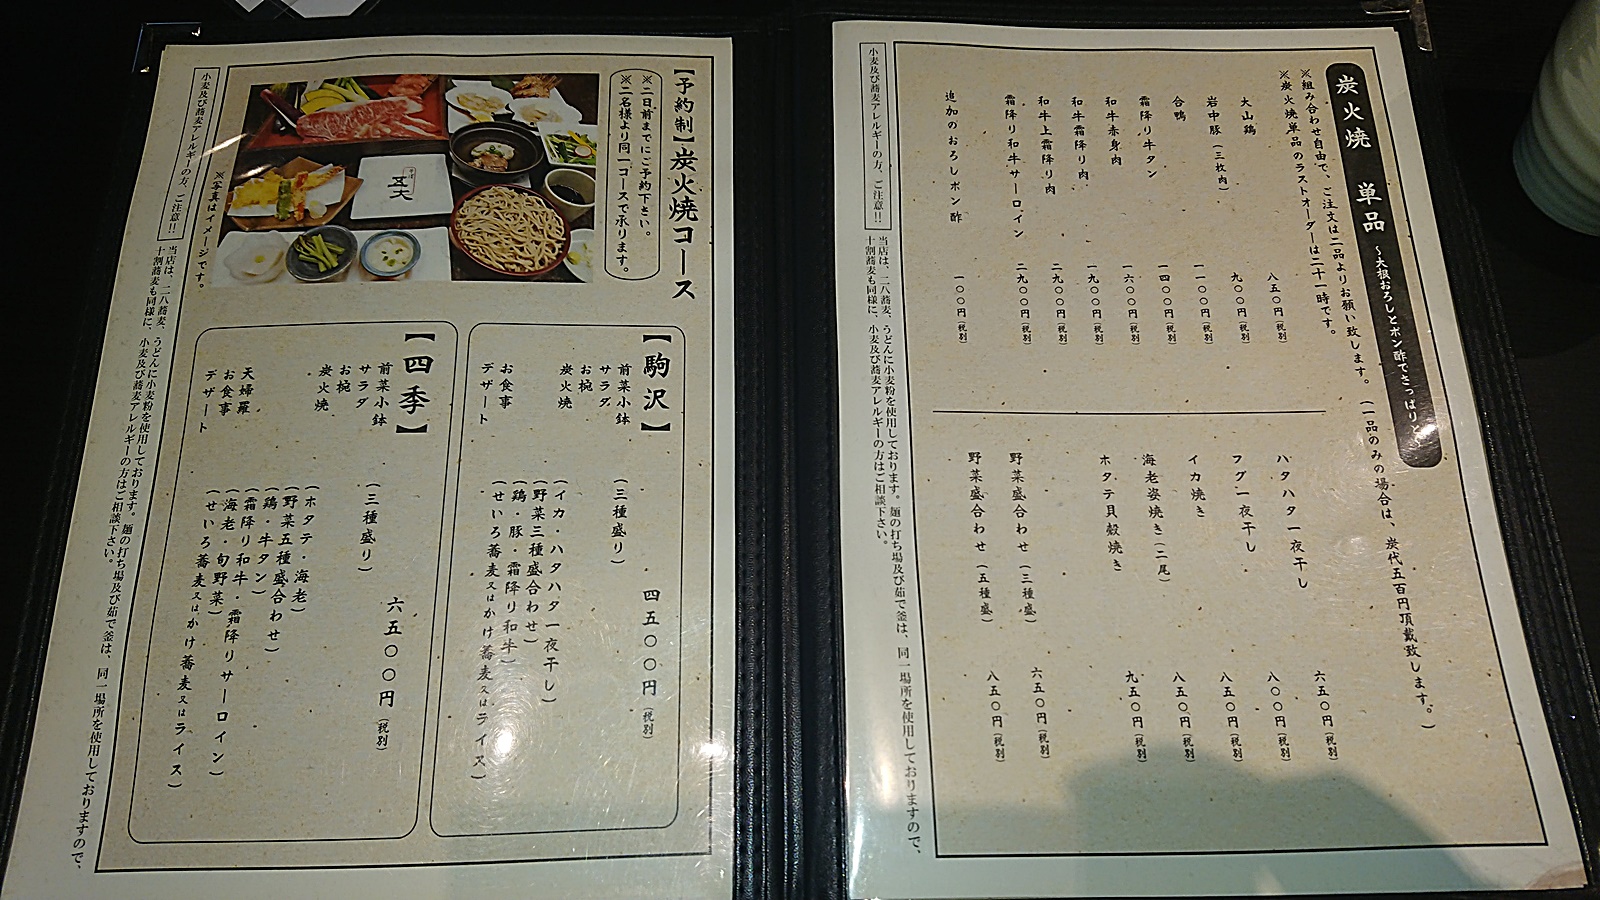 炭火焼 単品 ~大根おろしとポン酢でさっぱりと
※組み合わせ自由で、ご注文は二品よりお願い致します。(一品のみの場合は、炭代五百円頂戴致します。)
※炭火焼単品のラストオーダーは二十一時です。
大山鶏 八五〇円(税別)
岩中豚(三枚肉) 九〇〇円(税別)
合鴨 一一〇〇円(税別)
霜降り牛タン 一四〇〇円(税別)
和牛赤身肉 一六〇〇円(税別)
和牛霜降り肉 一九〇〇円(税別)
和牛上霜降り肉 二九〇〇円(税別)
霜降り和牛サーロイン 二九〇〇円(税別)
追加のおろしポン酢 一〇〇円(税別)
ハタハタ一夜干し 六五〇円(税別)
フグ一夜干し 八〇〇円(税別)
イカ焼き 八五〇円(税別)
海老姿焼き(二尾) 八五〇円(税別)
ホタテ貝殻焼き 九五〇円(税別)
野菜盛合わせ(三種盛) 六五〇円(税別)
野菜盛合わせ(五種盛) 八五〇円(税別)
小麦及び蕎麦アレルギーの方、ご注意!!
当店は、二八蕎麦、うどんに小麦粉を使用しております。麺の打ち場及び茹で釜は、同一場所を使用しておりますので、
十割蕎麦も同様に、小麦及び蕎麦アレルギーの方はご相談下さい。
【予約制】炭火焼コース
※二日前までにご予約下さい。
※二名様より同一コースで承ります。
五大
※写真はイメージです。
【駒沢】 四五〇〇円(税別)
前菜小鉢 (三種盛り)
サラダ
お椀
炭火焼 (イカ・ハタハタ一夜干し)
(野菜三種盛合わせ)
(鶏・豚・霜降り和牛)
お食事 (せいろ蕎麦又はかけ蕎麦又はライス)
デザート
【四季】 六五〇〇円(税別)
前菜小鉢 (三種盛り)
サラダ
お椀
炭火焼 (ホタテ・海老)
(野菜五種盛合わせ)
(鶏・牛タン)
(霜降り和牛・霜降りサーロイン)
天婦羅 (海老・旬野菜)
お食事 (せいろ蕎麦又はかけ蕎麦又はライス)
デザート
小麦及び蕎麦アレルギーの方、ご注意!!
当店は、二八蕎麦、うどんに小麦粉を使用しております。麺の打ち場及び茹で釜は、同一場所を使用しておりますので、
十割蕎麦も同様に、小麦及び蕎麦アレルギーの方はご相談下さい。